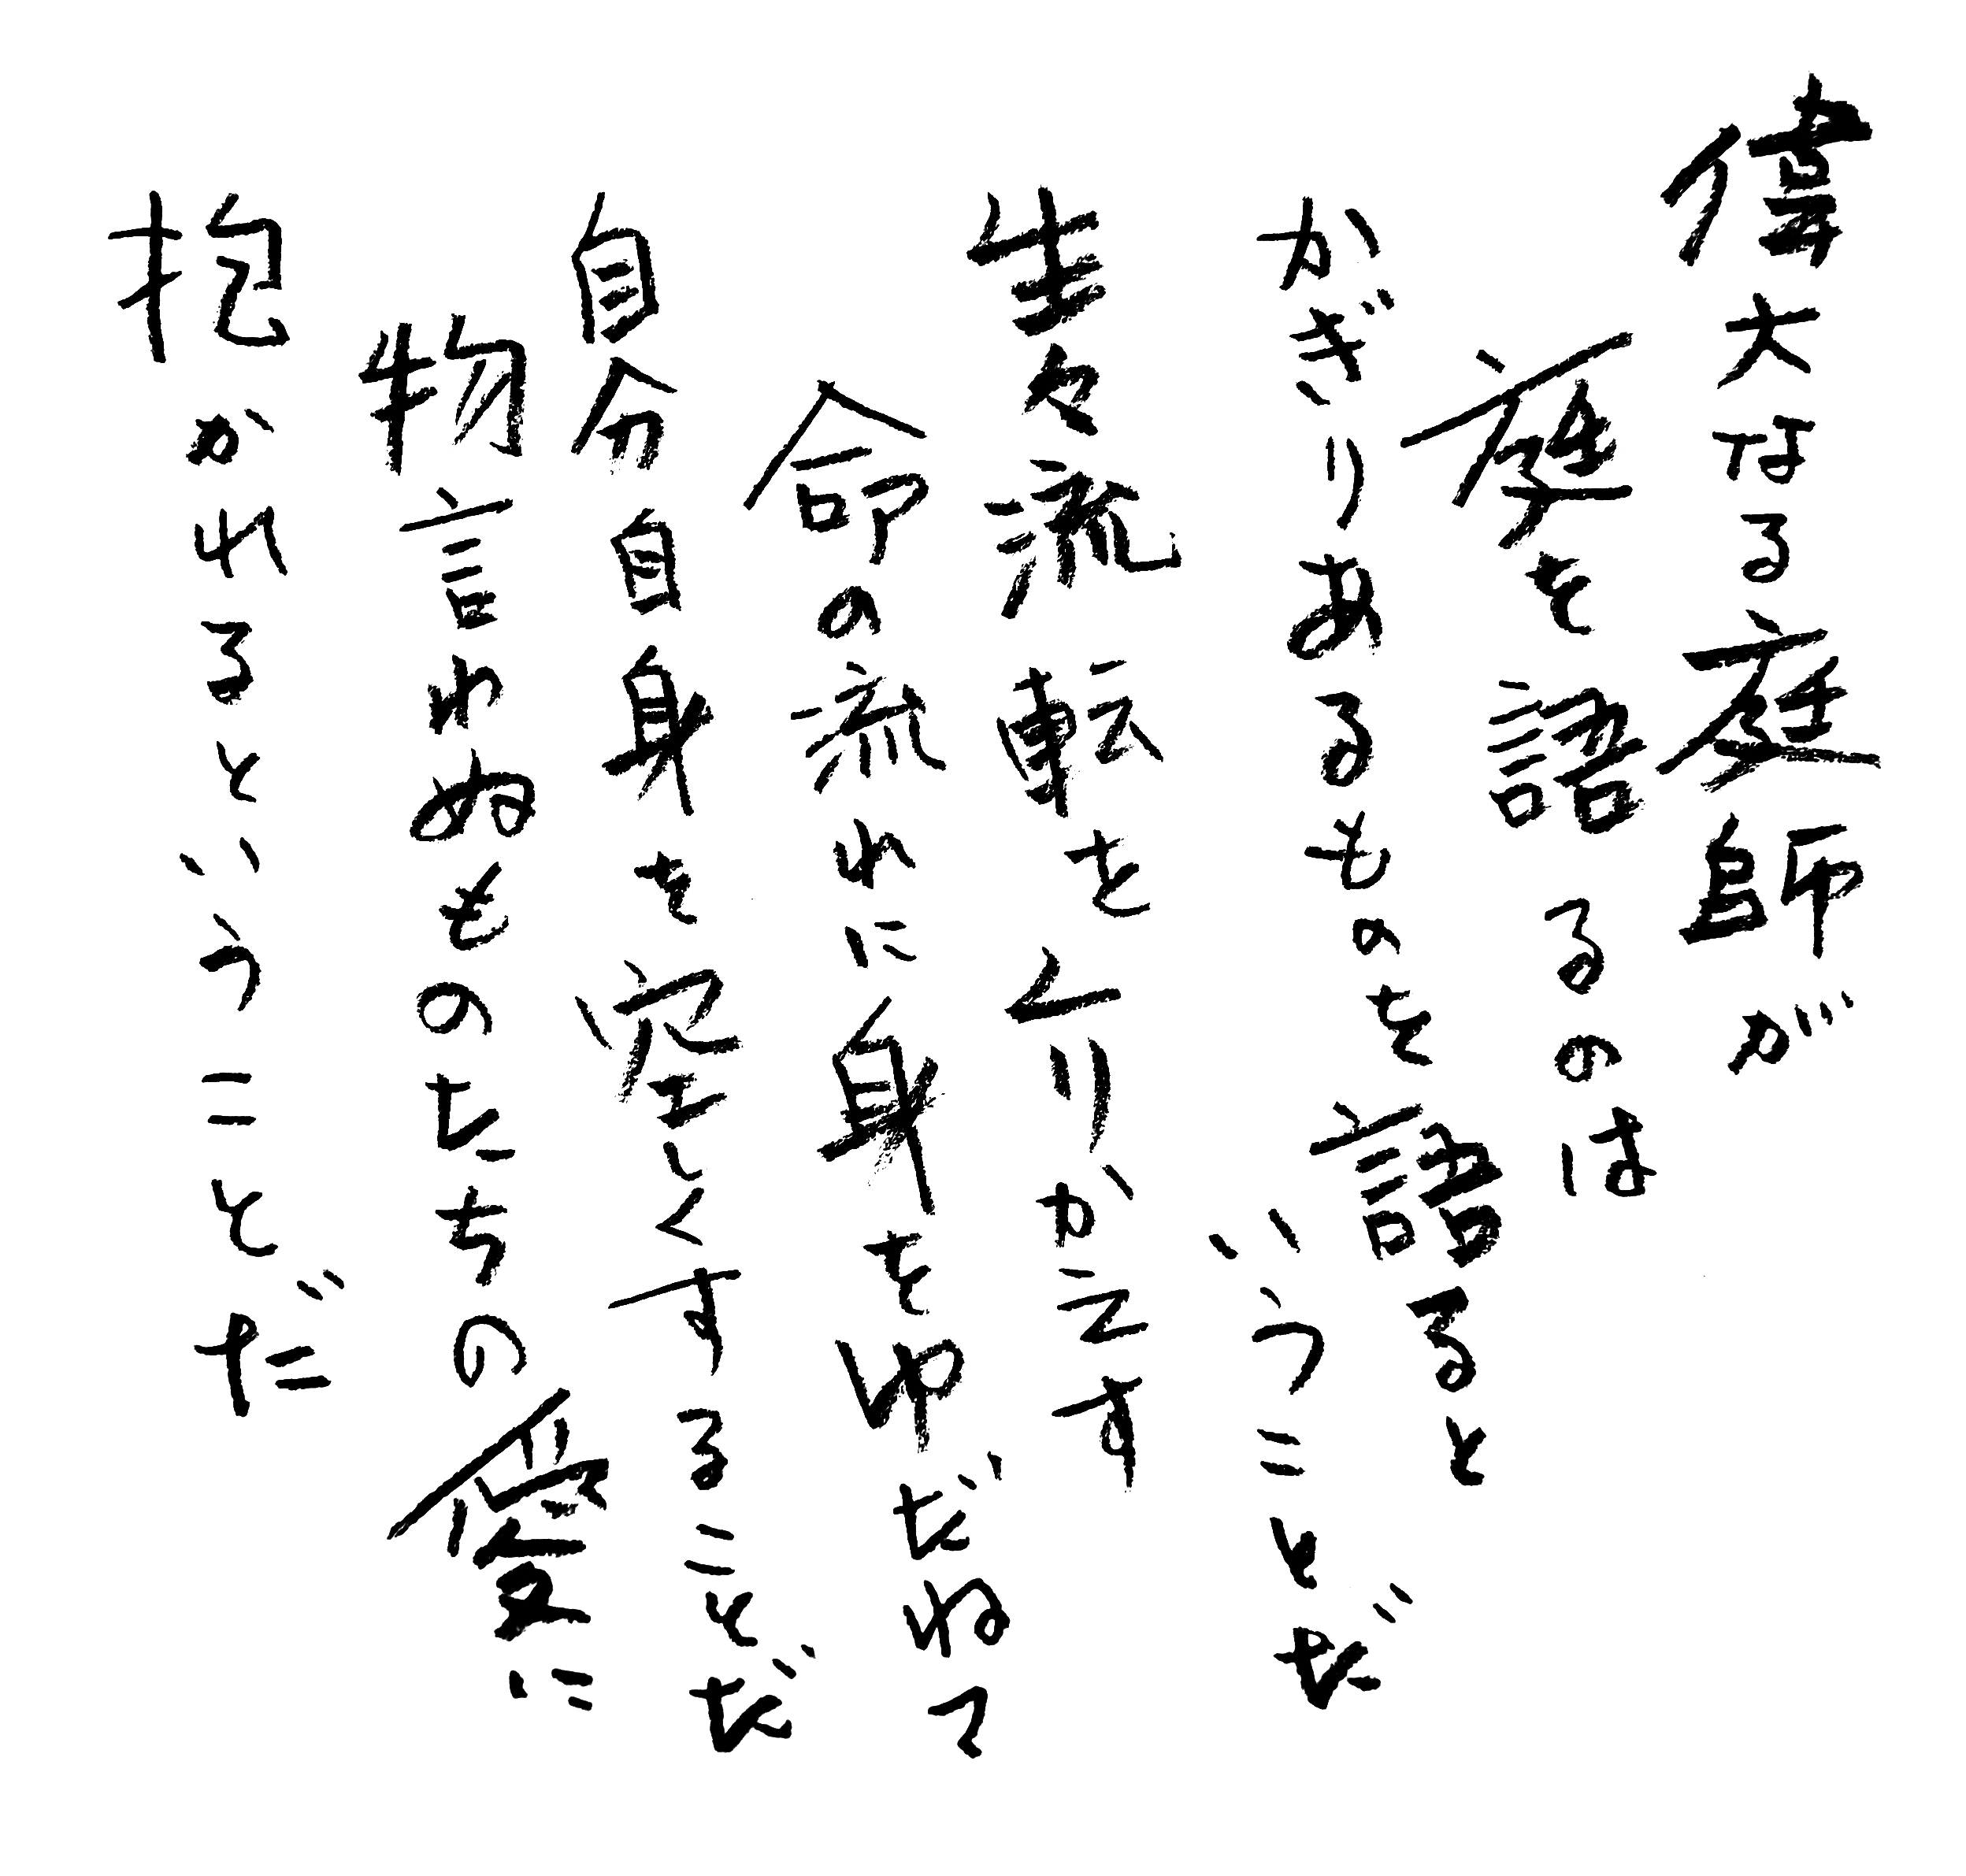 偉大なる庭師が
庭を語るのは
かぎりあるものを語ると
いうことだ
生々流転をくりかえす
命の流れに身をゆだねて
自分自身を空しくすることだ
物言わぬものたちの愛に
抱かれるということだ